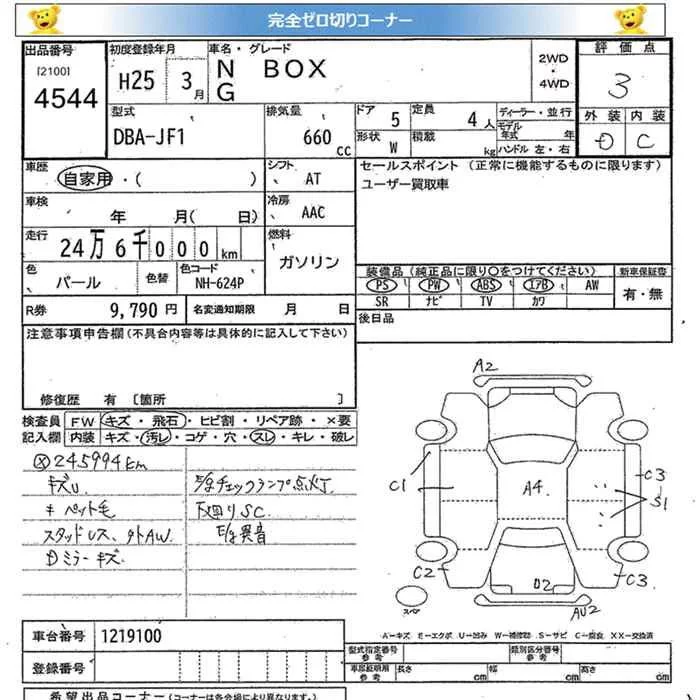 完全ゼロ切りコーナー
出品番号
[2100]
4544
初度登録年月
H25 3月
車名・グレード
N BOX
G
2WD
・
4WD
評価点
3
外装 内装
D C
型式
DBA-JF1
排気量
660 cc
ドア 5
形状 W
定員 4人
積載 kg
ディーラー・並行
モデル年式 年
ハンドル 左・右
車歴
自家用・( )
シフト
AT
車検
年 月( 日)
冷房
AAC
走行
24万6千000km
燃料
ガソリン
色
パール
色替
色コード
NH-624P
R券 9,790円
名変通知期限 月 日
セールスポイント (正常に機能するものに限ります)
ユーザー買取車
装備品(純正品に限り○をつけてください)
PS PW ABS エアB AW
SR ナビ TV カワ
新車保証書
有・無
後日品
注意事項申告欄(不具合内容等は具体的に記入して下さい)
修復歴 有 [箇所 ]
検査員 FW キズ・飛石・ヒビ割・リペア跡・×要
記入欄 内装 キズ・汚レ・コゲ・穴・スレ・キレ・破レ
245994km
キズU
キ ペット毛
スタッドレス、外AW
Dミラーキズ
E/gチェックランプ点灯
下回りSC
E/g異音
A2
C1
A4
C3
S1
C2
D2
C3
AU2
スペア
A-キズ E-エクボ U-凹み W-補修跡 S-サビ C-腐食 XX-交換済
車台番号 1219100
登録番号
型式指定番号
参考
類別区分番号
参考
車庫証明用
参考
長さ cm
幅 cm
高さ cm
希望出品コーナー(コーナーは各会場により異なります。)